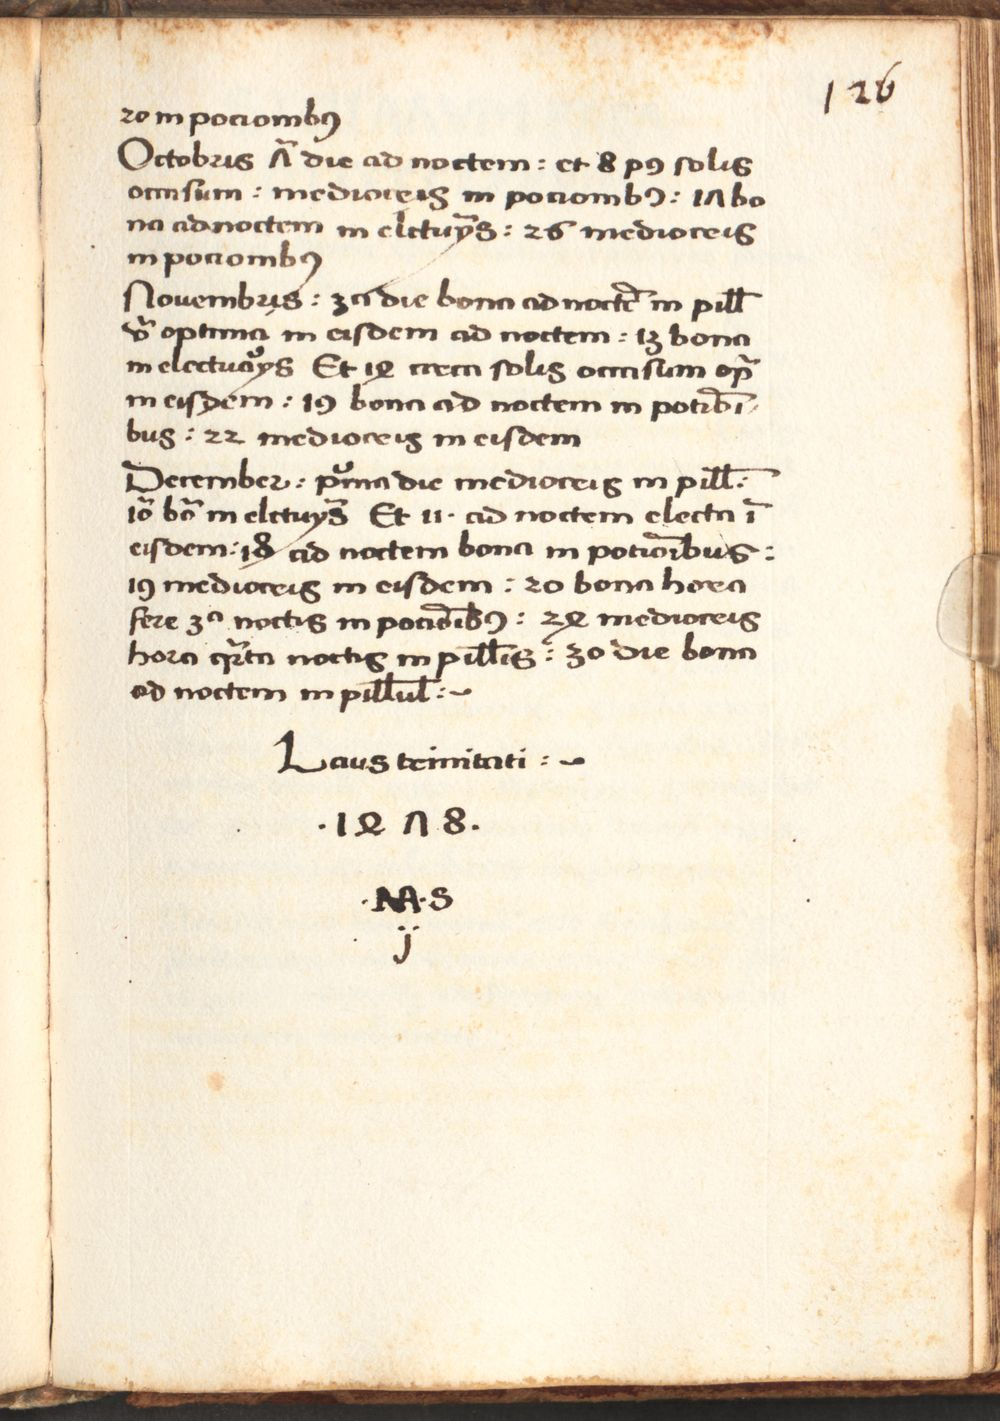 126
20 in pocionibꝯ
Octobris 7ᵃ die ad noctem : et 8 pꝯ solis
occasum : mediocris in pocionibꝯ : 17 bo
na ad noctem in elctuȳs : 26 mediocris
in pocionibꝯ
Novembris : 3ᵃ die bona ad noctē in pill̄
optima in eisdem ad noctem : 13 bona
in electuaȳs Et 14 circa solis occasum opᵃ
in eisdem : 19 bona ad noctem in
bus : 22 mediocris in eisdem
December : pͥma die mediocris in pill̄ :
10 bōᵃ in elctuȳs Et 11 · ad noctem electa ī
eisdem : 18 ad noctem bona in pocionibus :
19 mediocris in eisdem : 20 bona hora
fere 3ᵃ noctis in pocionibꝯ : 24 mediocris
hora qᵃrta noctis in pill̄is : 30 die bona
ad noctem in pill̄ul̄ :~
Laus trinitati :~
· 1 4 7 8 ·
· MA · S
j̈